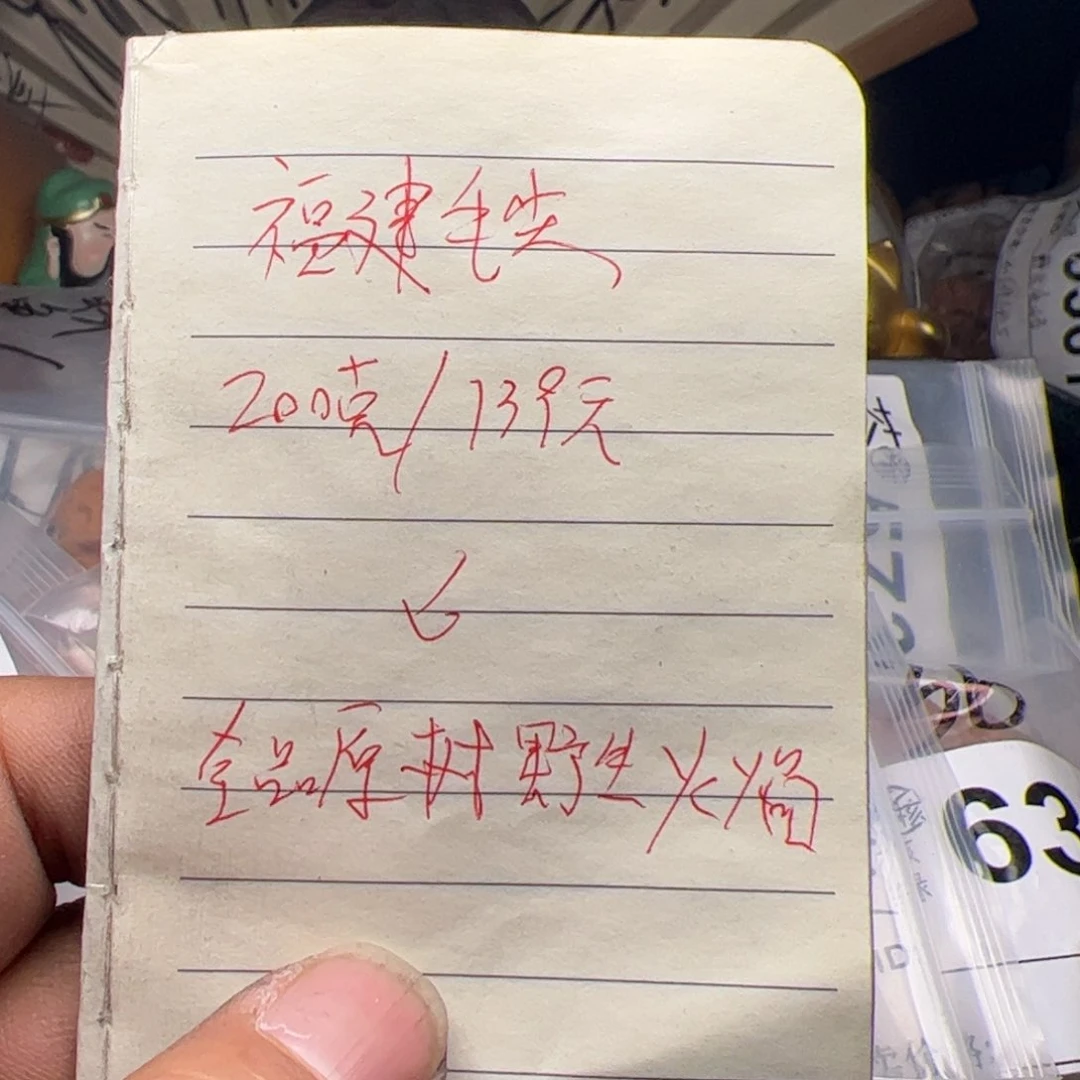 福建毛尖
200克/139元
全品原树野生火焰
63